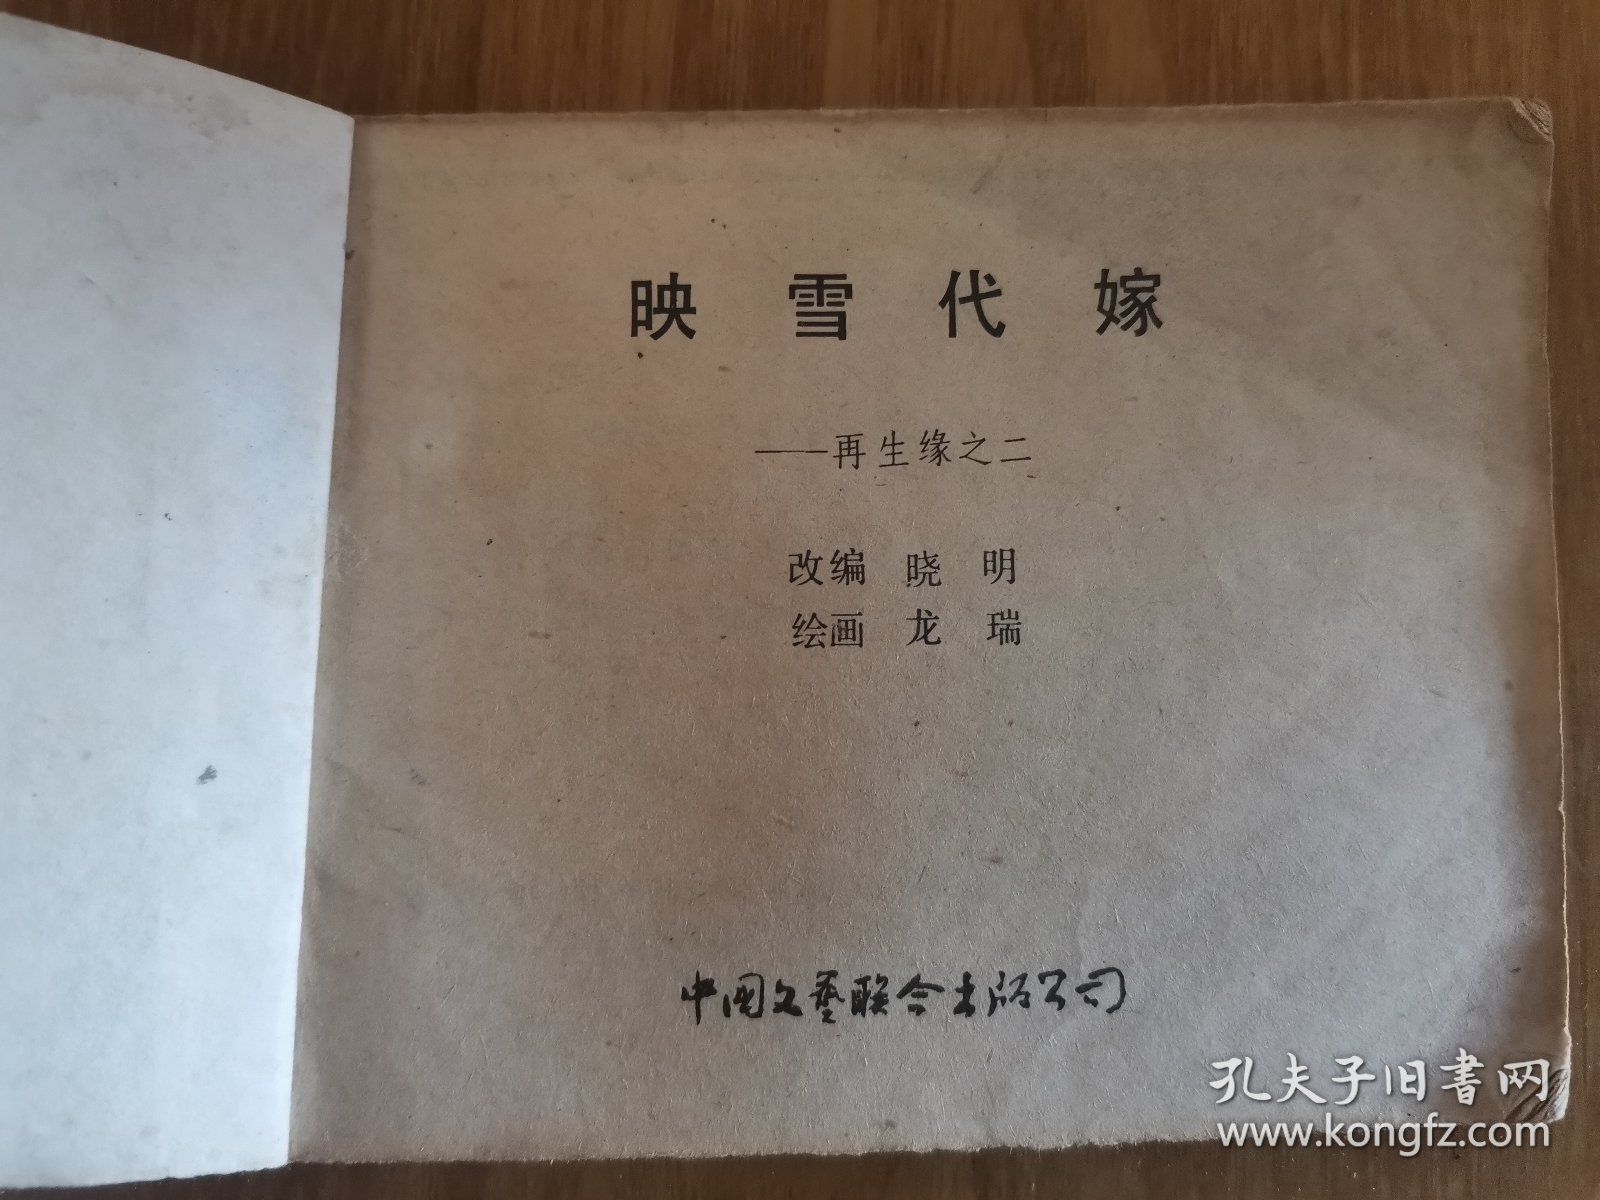 映雪代嫁
——再生缘之二
改编 晓明
绘画 龙瑞
中国文艺联合出版公司
孔夫子旧书网
www.kongfz.com